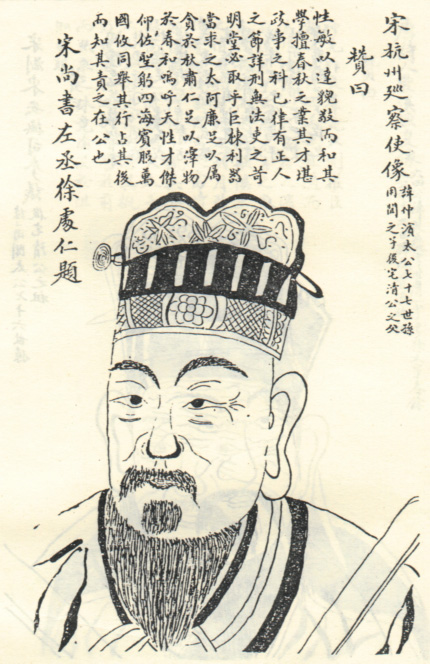 宋杭州廵察使像
諱仲濱太公七十七世孫
用閎之子後宅清公之父
贊曰
性敏以達貌敬而和其
學擅春秋之業其才堪
政事之科己律有正人
之節詳刑無法吏之苛
明堂必取乎巨棟利器
當求之太阿廉足以厲
貪於秋肅仁足以澤物
於春和嗚呼天性才傑
仰佐聖躬四海賓服萬
國攸同舉其行占其後
而知其責之在公也
宋尚書左丞徐處仁題